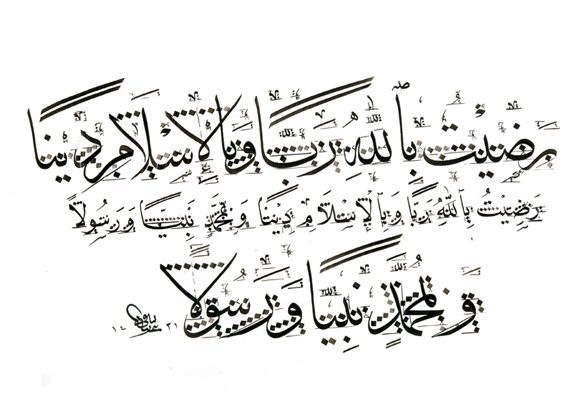 رَضِيْتُ بِاللهِ رَبًّا وَبِالْاِسْلَامِ دِيْنًا
رَضِيْتُ بِاللهِ رَبًّا وَبِالْاِسْلَامِ دِيْنًا وَبِمُحَمَّدٍ نَبِيًّا وَرَسُوْلًا
وَبِمُحَمَّدٍ نَبِيًّا وَرَسُوْلًا